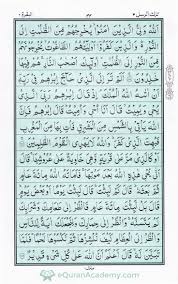 تلك الرسل ٣
البقرة ٢
اَللّٰهُ وَلِىُّ الَّذِيْنَ اٰمَنُوْا يُخْرِجُهُمْ مِّنَ الظُّلُمٰتِ اِلَى
النُّوْرِ وَالَّذِيْنَ كَفَرُوْا اَوْلِيٰٓـُٔهُمُ الطَّاغُوْتُ يُخْرِجُوْنَهُمْ
مِّنَ النُّوْرِ اِلَى الظُّلُمٰتِ اُولٰٓئِكَ اَصْحٰبُ النَّارِ هُمْ فِيْهَا
خٰلِدُوْنَ اَلَمْ تَرَ اِلَى الَّذِىْ حَآجَّ اِبْرٰهٖمَ فِىْ رَبِّهٖٓ اَنْ
اٰتٰىهُ اللّٰهُ الْمُلْكَ اِذْ قَالَ اِبْرٰهٖمُ رَبِّىَ الَّذِىْ يُحْىٖ
وَيُمِيْتُ قَالَ اَنَا اُحْىٖ وَاُمِيْتُ قَالَ اِبْرٰهٖمُ فَاِنَّ اللّٰهَ
يَاْتِىْ بِالشَّمْسِ مِنَ الْمَشْرِقِ فَاْتِ بِهَا مِنَ الْمَغْرِبِ
فَبُهِتَ الَّذِىْ كَفَرَ وَاللّٰهُ لَا يَهْدِى الْقَوْمَ الظّٰلِمِيْنَ
اَوْ كَالَّذِىْ مَرَّ عَلٰى قَرْيَةٍ وَّهِىَ خَاوِيَةٌ عَلٰى عُرُوْشِهَا
قَالَ اَنّٰى يُحْىٖ هٰذِهِ اللّٰهُ بَعْدَ مَوْتِهَا فَاَمَاتَهُ اللّٰهُ
مِائَةَ عَامٍ ثُمَّ بَعَثَهٗ قَالَ كَمْ لَبِثْتَ قَالَ لَبِثْتُ يَوْمًا اَوْ
بَعْضَ يَوْمٍ قَالَ بَلْ لَّبِثْتَ مِائَةَ عَامٍ فَانْظُرْ اِلٰى طَعَامِكَ وَشَرَابِكَ
لَمْ يَتَسَنَّهْ وَانْظُرْ اِلٰى حِمَارِكَ وَلِنَجْعَلَكَ اٰيَةً لِّلنَّاسِ
وَانْظُرْ اِلَى الْعِظَامِ كَيْفَ نُنْشِزُهَا ثُمَّ نَكْسُوْهَا لَحْمًا فَلَمَّا
eQuranAcademy.com